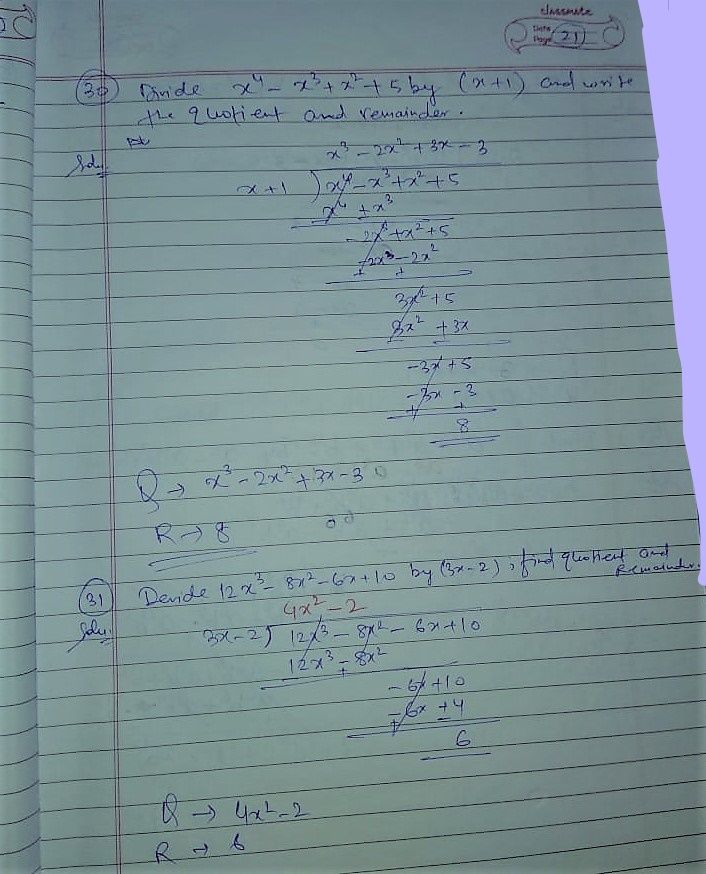 classmate
Date
Page 21
30 Divide x⁴ - x³ + x² + 5 by (x+1) and write
the quotient and remainder.
Soln. x³ - 2x² + 3x - 3
x+1 ) x⁴ - x³ + x² + 5
x⁴ + x³
- 2x³ + x² + 5
- 2x³ - 2x²
+ +
3x² + 5
3x² + 3x
- -
-3x + 5
-3x - 3
+ +
8
Q → x³ - 2x² + 3x - 3
R → 8
31 Devide 12x³ - 8x² - 6x + 10 by (3x-2), find quotient and
Remainder.
Soln. 4x² - 2
3x-2 ) 12x³ - 8x² - 6x + 10
12x³ - 8x²
- +
- 6x + 10
- 6x + 4
+ -
6
Q → 4x² - 2
R → 6